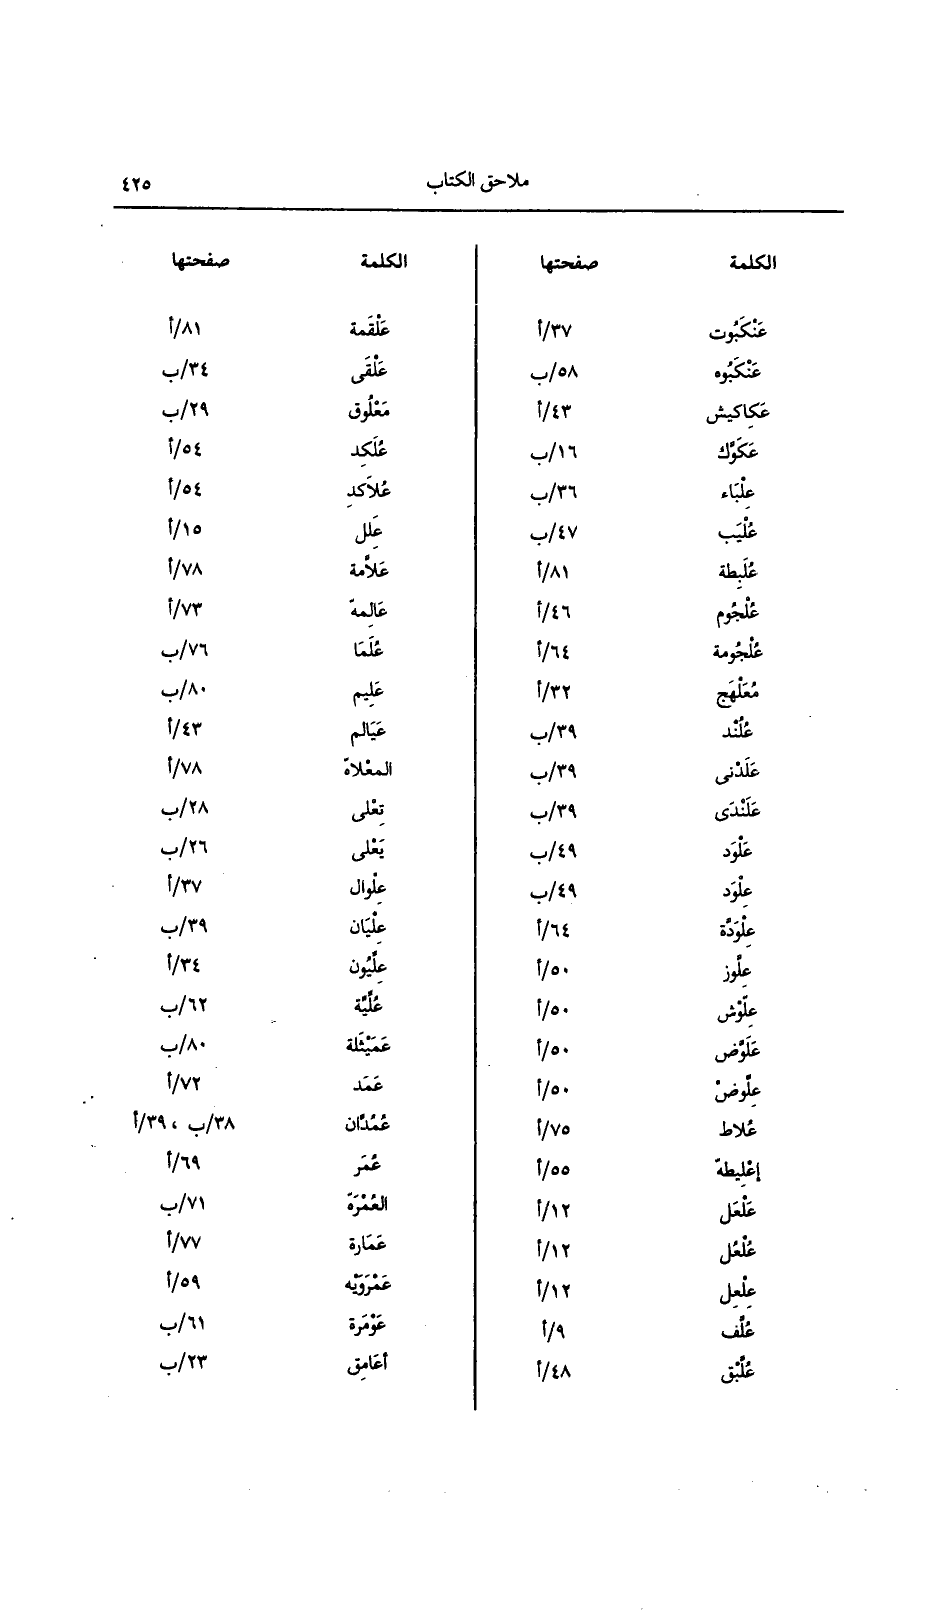 ملاحق الكتاب ٤٢٥
الكلمة صفحتها الكلمة صفحتها
عَنْكَبُوت ٣٧/أ عَلْقَمة ٨١/أ
عَنْكَبُوه ٥٨/ب عَلْقَى ٣٤/ب
عَكاكيش ٤٣/أ مَعْلُوق ٢٩/ب
عَكَوَّك ١٦/ب عُلَكِد ٥٤/أ
عِلْبَاء ٣٦/ب عُلاَكدِ ٥٤/أ
عُلْيَب ٤٧/ب عَلِل ١٥/أ
عُلَبِطة ٨١/أ عَلاَّمة ٧٨/أ
عُلْجُوم ٤٦/أ عَالِمهّ ٧٣/أ
عُلْجُومة ٦٤/أ عُلَمَا ٧٦/ب
مُعَلْهَج ٣٢/أ عَلِيم ٨٠/ب
عُلُنْد ٣٩/ب عَيَالم ٤٣/أ
عَلَدْنى ٣٩/ب المعْلاةّ ٧٨/أ
عَلَنْدَى ٣٩/ب تِعْلى ٢٨/ب
عَلْوَد ٤٩/ب يَعْلى ٢٦/ب
عِلْوَد ٤٩/ب عِلْوال ٣٧/أ
عِلْوَدَّة ٦٤/أ عِلْيَان ٣٩/ب
عِلَّوز ٥٠/أ عِلِّيُون ٣٤/أ
عِلَّوْش ٥٠/أ عُلِّيَّة ٦٢/ب
عَلَوَّض ٥٠/أ عَمَيْثَلة ٨٠/ب
عِلَّوضْ ٥٠/أ عَمَد ٧٢/أ
عُلاط ٧٥/أ عُمُدَّان ٣٨/ب ، ٣٩/أ
إعْلِيطةّ ٥٥/أ عُمَر ٦٩/أ
عَلْعَل ١٢/أ العُمْرَة ٧١/ب
عُلْعُل ١٢/أ عَمَارة ٧٧/أ
عِلْعِل ١٢/أ عَمْرَوَيْه ٥٩/أ
عُلَّف ٩/أ عَوْمَرة ٦١/ب
عُلَّبْق ٤٨/أ أعَامِق ٢٣/ب